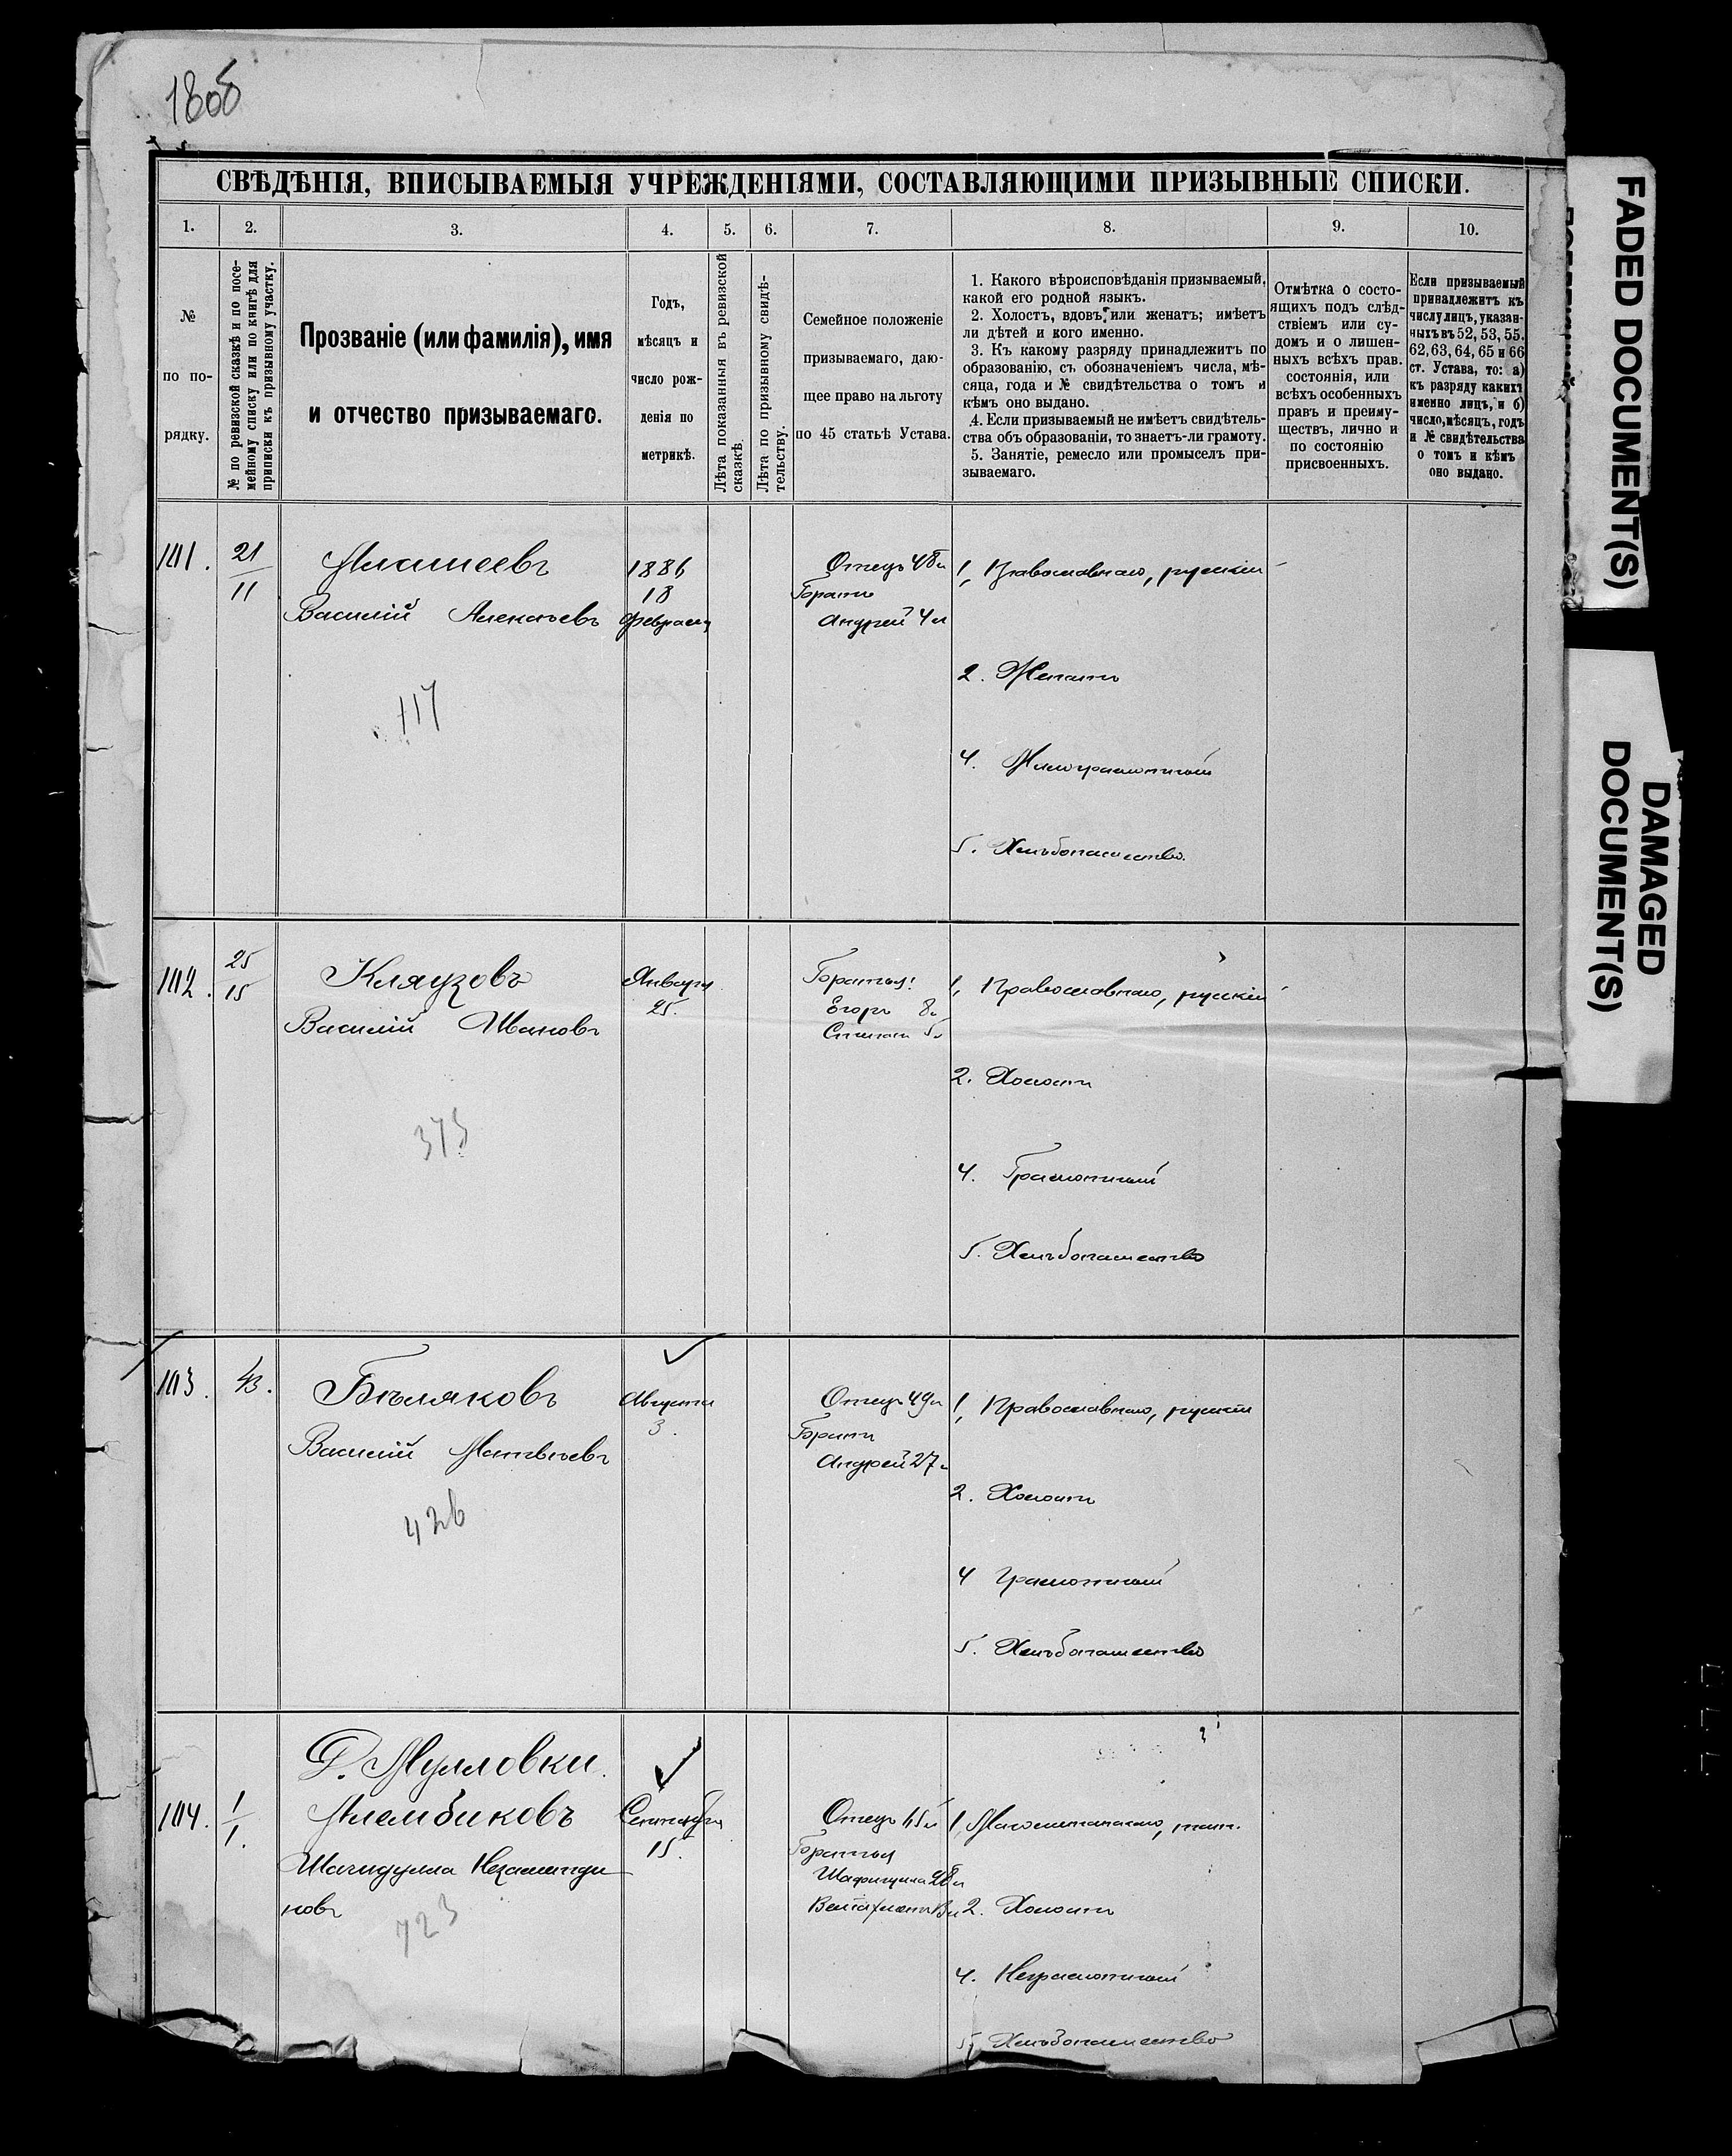 180б
СВѢДѢНІЯ, ВПИСЫВАЕМЫЯ УЧРЕЖДЕНІЯМИ, СОСТАВЛЯЮЩИМИ ПРИЗЫВНЫЕ СПИСКИ.
1. 2. 3. 4. 5. 6. 7. 8. 9. 10.
№
по по-
рядку.
№ по ревизской сказкѣ и по посе-
мейному списку или по книгѣ для
приписки къ призывному участку.
Прозваніе (или фамилія), имя
и отчество призываемаго.
Годъ,
мѣсяцъ и
число рож-
денія по
метрикѣ.
Лѣта показанныя въ ревизской
сказкѣ.
Лѣта по призывному свидѣ-
тельству.
Семейное положеніе
призываемаго, даю-
щее право на льготу
по 45 статьѣ Устава.
1. Какого вѣроисповѣданія призываемый,
какой его родной языкъ.
2. Холостъ, вдовъ или женатъ; имѣетъ
ли дѣтей и кого именно.
3. Къ какому разряду принадлежитъ по
образованію, съ обозначеніемъ числа, мѣ-
сяца, года и № свидѣтельства о томъ и
кѣмъ оно выдано.
4. Если призываемый не имѣетъ свидѣтель-
ства объ образованіи, то знаетъ-ли грамоту.
5. Занятіе, ремесло или промыселъ при-
зываемаго.
Отмѣтка о состо-
ящихъ подъ слѣд-
ствіемъ или су-
домъ и о лишен-
ныхъ всѣхъ прав.
состоянія, или
всѣхъ особенныхъ
правъ и преиму-
ществъ, лично и
по состоянію
присвоенныхъ.
Если призываемый
принадлежитъ къ
числу лицъ, указан-
ныхъ въ 52, 53, 55.
62, 63, 64, 65 и 66
ст. Устава, то: а)
къ разряду какихъ
именно лицъ, и б)
число, мѣсяцъ, годъ
и № свидѣтельства
о томъ и кѣмъ
оно выдано.
101.
21
11
Василій Алексѣевъ
117
1886
18
Февраля
Отецъ 48 л
Братъ
Андрей 4 л
1, Православнаго, русскій
2. Женатъ
4. Малограмотный
5. Хлѣбопашество.
102.
25
15
Кляузовъ
Василій Ивановъ
375
Января
25.
Братья:
Егоръ 8 л
Степанъ 5 л
1, Православнаго, русскій
2. Холостъ
4. Грамотный
5. Хлѣбопашество
103.
43.
Бѣляковъ
Василій Матвѣевъ
426
Августа
3.
Отецъ 49 л
Братъ
Андрей 27 л
1, Православнаго, русскій
2. Холостъ
4 Грамотный
5. Хлѣбопашество
104.
1
1.
Д. Мулловки.
Алембиковъ
Шагидулла
новъ
723
Сентября
15.
Отецъ 65 л
Братья
1, Магометанскаго, тат.
2. Холостъ
4. Неграмотный
5. Хлѣбопашество
FADED DOCUMENT(S)
DAMAGED
DOCUMENT(S)